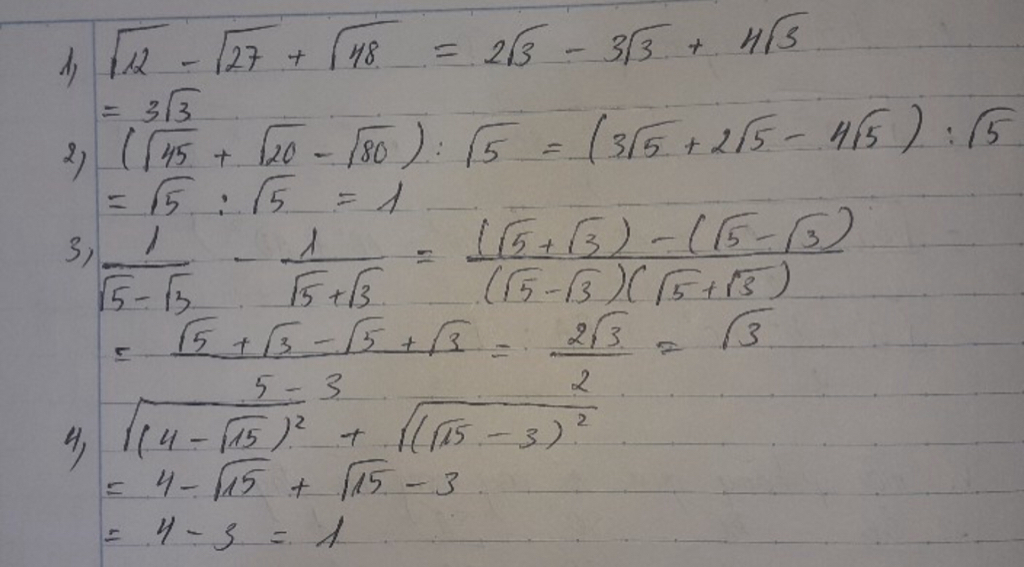 1, √12 - √27 + √48 = 2√3 - 3√3 + 4√3
= 3√3
2, (√45 + √20 - √80) : √5 = (3√5 + 2√5 - 4√5) : √5
= √5 : √5 = 1
3, 1/(√5 - √3) - 1/(√5 + √3) = ((√5 + √3) - (√5 - √3))/((√5 - √3)(√5 + √3))
= (√5 + √3 - √5 + √3)/(5 - 3) = 2√3/2 = √3
4, √(4 - √15)² + √(√15 - 3)²
= 4 - √15 + √15 - 3
= 4 - 3 = 1